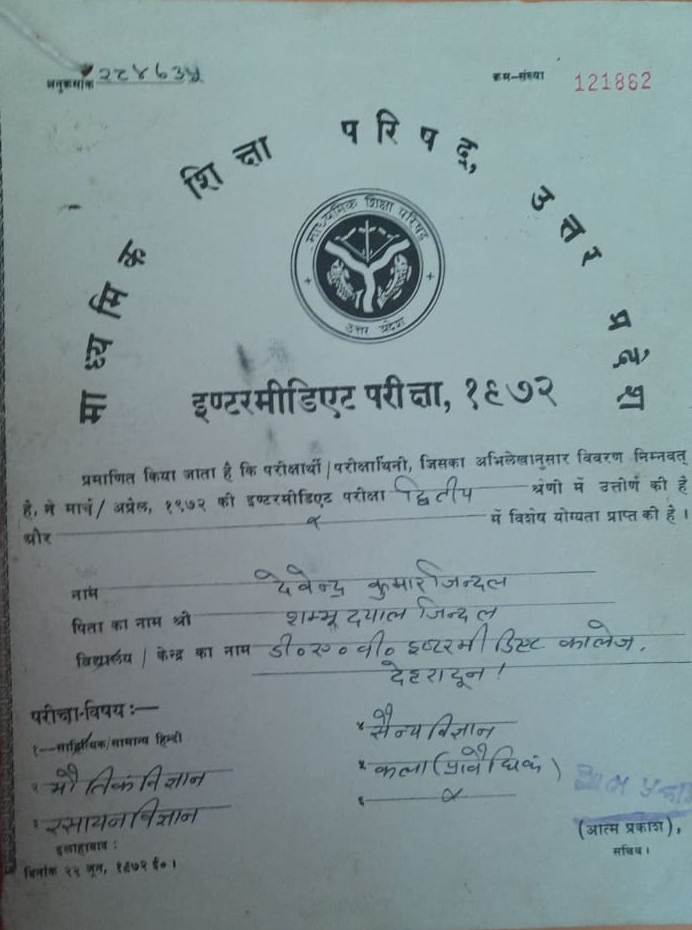 अनुक्रमांक २८४६३५
क्रम-संख्या 121862
माध्यमिक शिक्षा परिषद्, उत्तर प्रदेश
माध्यमिक शिक्षा परिषद
उत्तर प्रदेश
इण्टरमीडिएट परीक्षा, १९७२
प्रमाणित किया जाता है कि परीक्षार्थी/परीक्षार्थिनी, जिसका अभिलेखानुसार विवरण निम्नवत्
है, ने मार्च/अप्रैल, १९७२ की इण्टरमीडिएट परीक्षा द्वितीय श्रेणी में उत्तीर्ण की है
और × में विशेष योग्यता प्राप्त की है।
नाम देवेन्द्र कुमार जिन्दल
पिता का नाम श्री शम्भू दयाल जिन्दल
विद्यालय / केन्द्र का नाम डी० ए० वी० इण्टरमीडिएट कालेज,
देहरादून।
परीक्षा-विषय :—
१—साहित्यिक/सामान्य हिन्दी
२ भौतिक विज्ञान
३ रसायन विज्ञान
४ सैन्य विज्ञान
५ कला (प्राविधिक)
६ ×
(आत्म प्रकाश),
सचिव।
इलाहाबाद :
दिनांक २२ जून, १९७२ ई०।